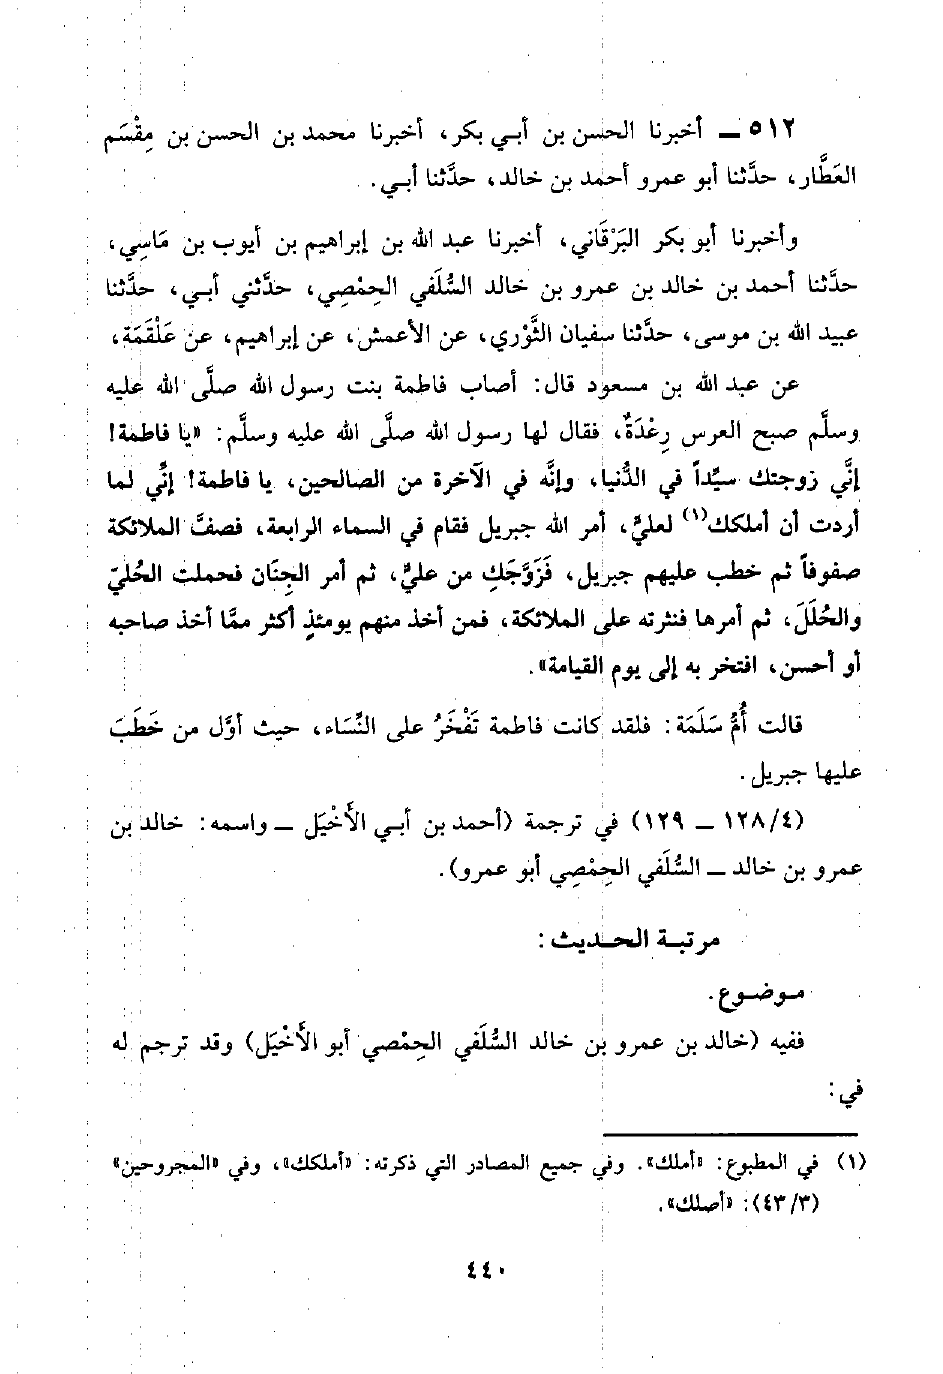 ٥١٢ ــ أخبرنا الحسن بن أبي بكر، أخبرنا محمد بن الحسن بن مِقْسَم
العَطَّار، حدَّثنا أبو عمرو أحمد بن خالد، حدَّثنا أبي.
وأخبرنا أبو بكر البَرْقَاني، أخبرنا عبد الله بن إبراهيم بن أيوب بن مَاسِي،
حدَّثنا أحمد بن خالد بن عمرو بن خالد السُّلَفي الحِمْصِي، حدَّثني أبي، حدَّثنا
عبيد الله بن موسى، حدَّثنا سفيان الثَّوْري، عن الأعمش، عن إبراهيم، عن عَلْقَمَة،
عن عبد الله بن مسعود قال: أصاب فاطمة بنت رسول الله صلَّى الله عليه
وسلَّم صبح العرس رِعْدَةٌ، فقال لها رسول الله صلَّى الله عليه وسلَّم: «يا فاطمة!
إنَّي زوجتك سيِّداً في الدُّنيا، وإنَّه في الآخرة من الصالحين، يا فاطمة! إنِّي لما
أردت أن أملكك(١) لعليٍّ، أمر الله جبريل فقام في السماء الرابعة، فصفَّ الملائكة
صفوفاً ثم خطب عليهم جبريل، فَزَوَّجَكِ من عليٍّ، ثم أمر الجِنَان فحملت الحُليّ
والحُلَلَ، ثم أمرها فنثرته على الملائكة، فمن أخذ منهم يومئذٍ أكثر ممَّا أخذ صاحبه
أو أحسن، افتخر به إلى يوم القيامة».
قالت أُمُّ سَلَمَة: فلقد كانت فاطمة تَفْخَرُ على النِّسَاء، حيث أوَّل من خَطَبَ
عليها جبريل.
(١٢٨/٤ ــ ١٢٩) في ترجمة (أحمد بن أبي الأَخْيَل ــ واسمه: خالد بن
عمرو بن خالد ــ السُّلَفي الحِمْصِي أبو عمرو).
مرتبة الحديث:
موضوع.
ففيه (خالد بن عمرو بن خالد السُّلَفي الحِمْصي أبو الأَخْيَل) وقد ترجم له
في:
(١) في المطبوع: «أملك». وفي جميع المصادر التي ذكرته: «أملكك»، وفي «المجروحين»
(٤٣/٣): «أصلك».
٤٤٠